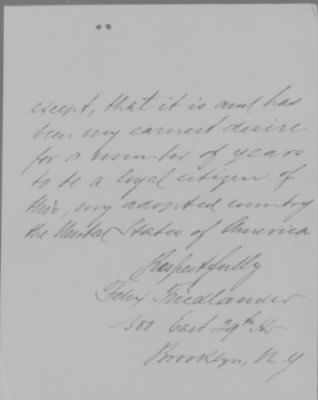 except, that it is and has
been my earnest desire
for a number of years
to be a loyal citizen of
this, my adopted country
the United States of America
Respectfully
Felix Friedlander
East 29th
Brooklyn, N.Y